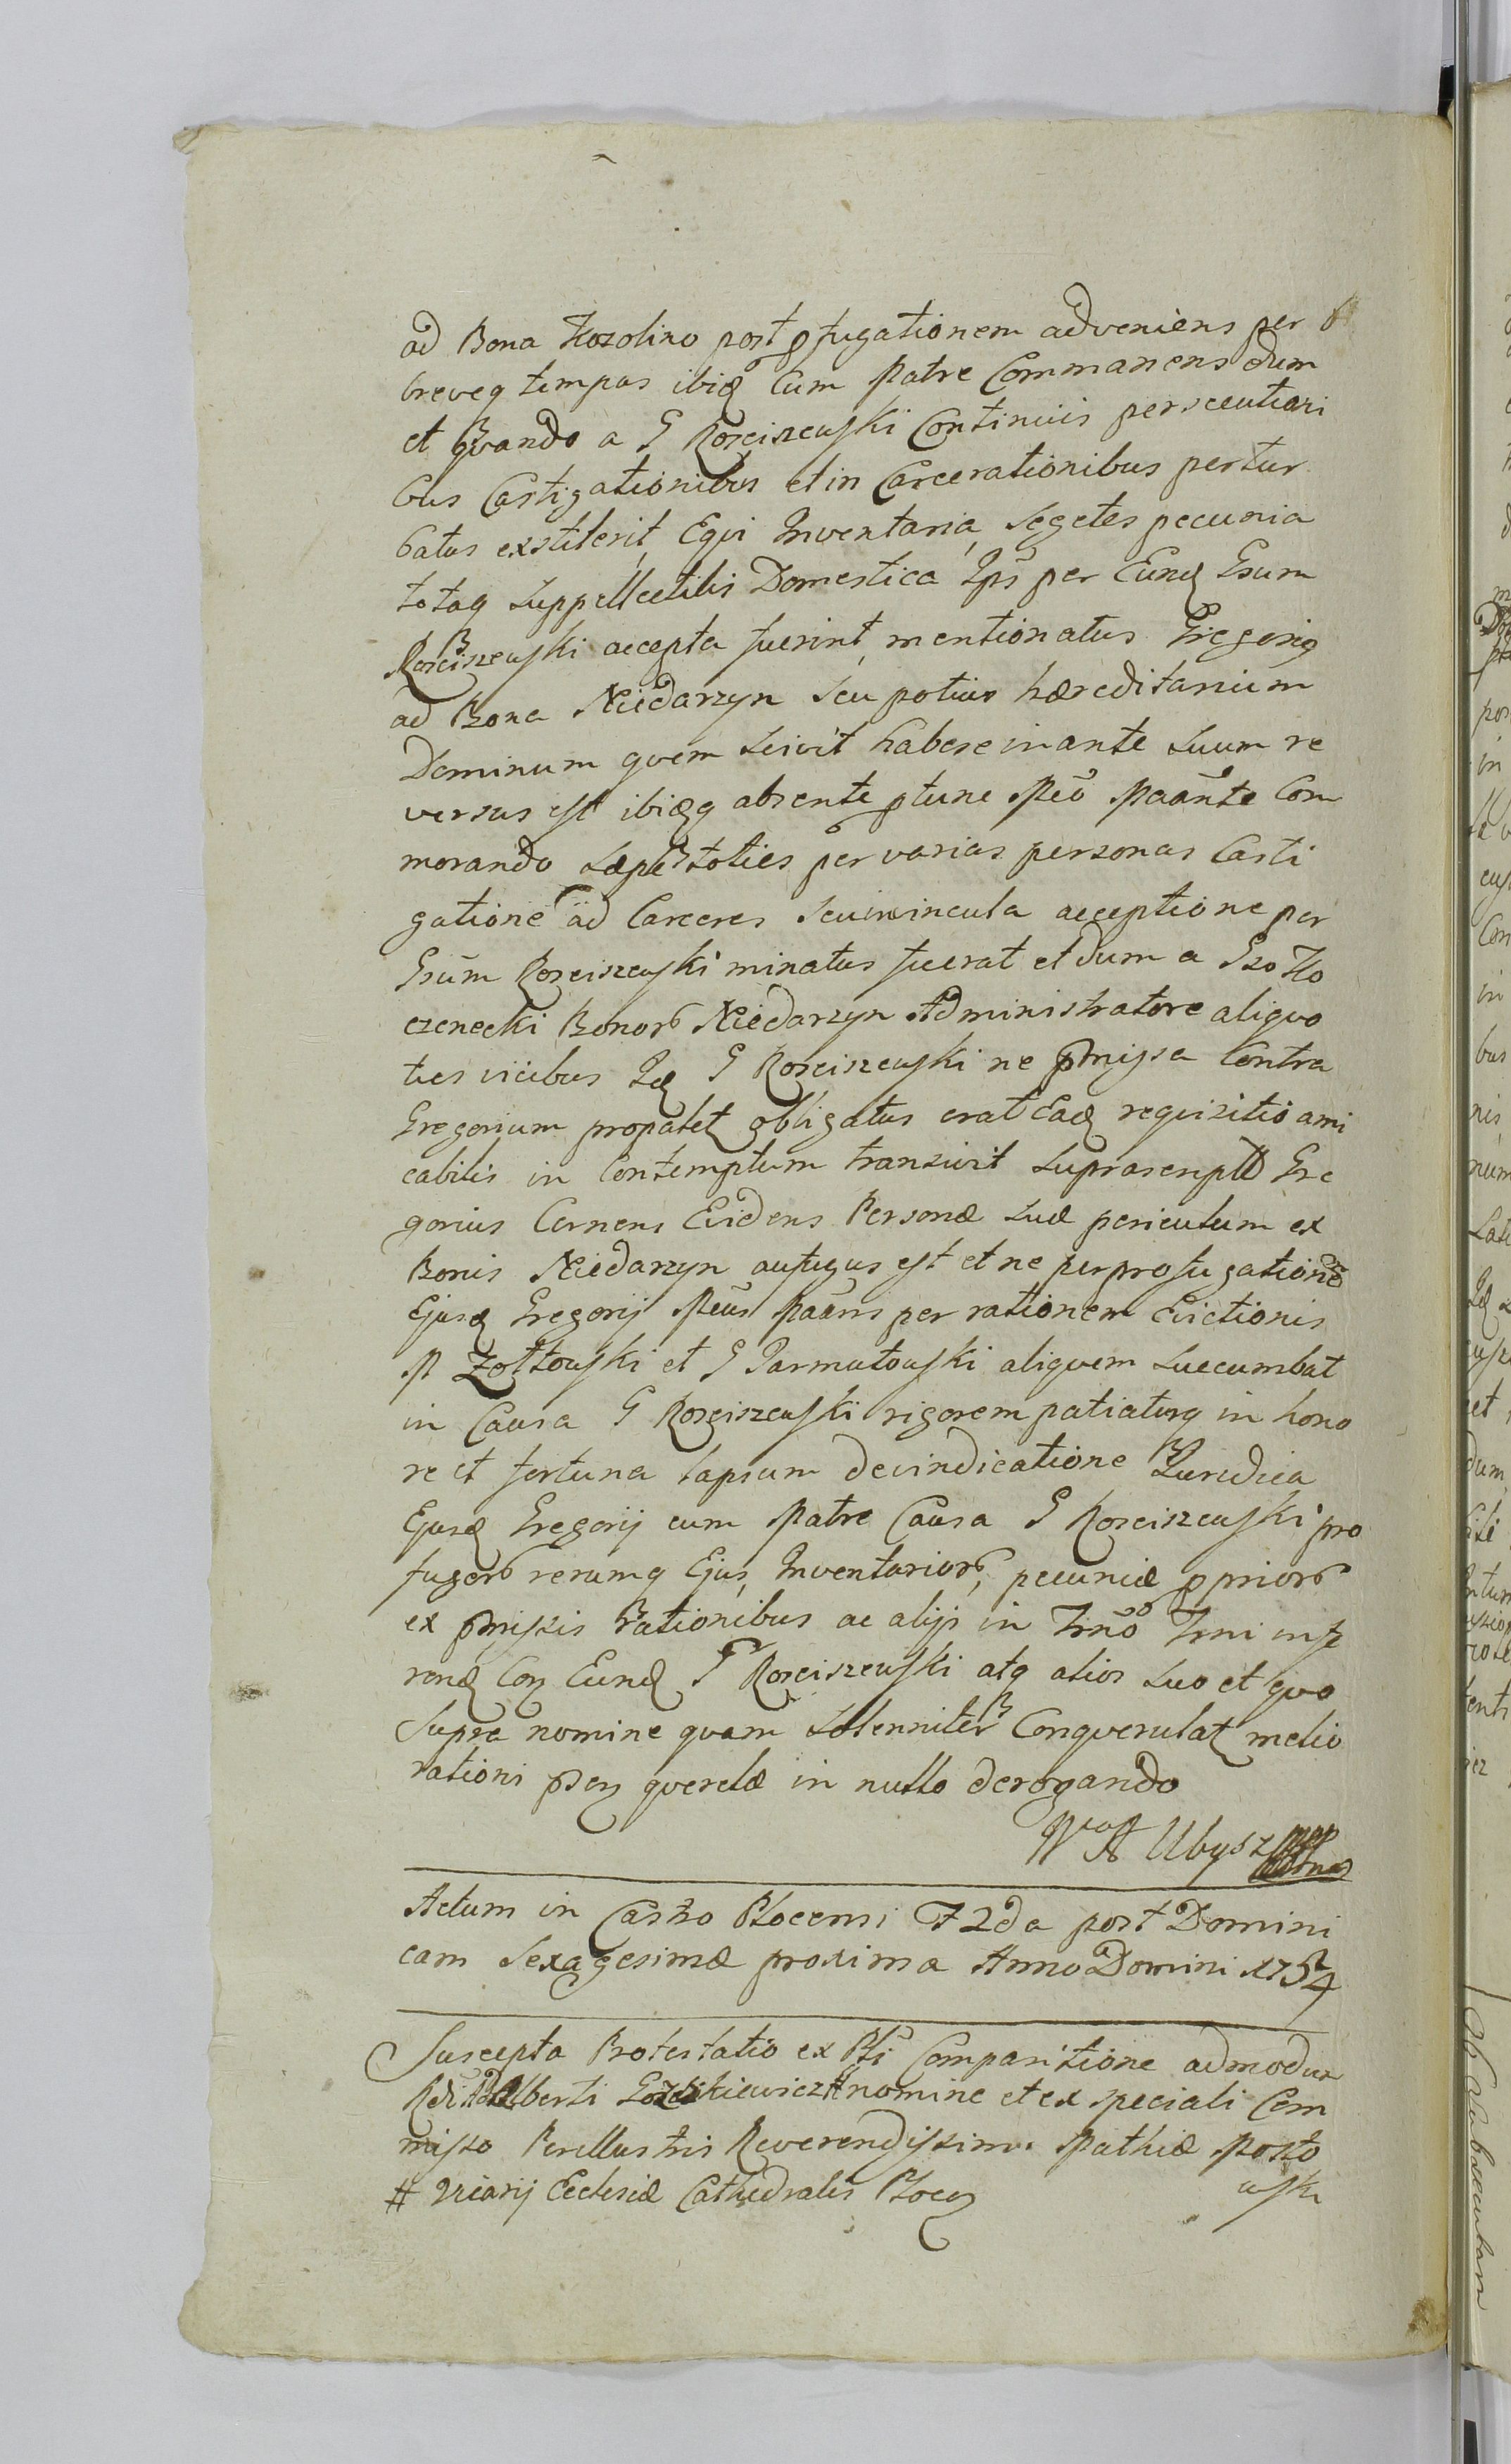 ad Bona Kozolino post pfugationem adveniens per
breveq tempus ibiq Cum Patre Commanens dum
et qvando a G Rosciszewski Continuis persecutioni
bus Castigationibus et in Carcerationibus pertur
batus exstiterit, Eqvi Inventaria, Segetes pecunia
totaq Suppellectilis Domestica Ips per Eund Gsum
Rosciszewski accepta fuerint, mentionatus Gregorig
ad Bona Niedarzyn Seu potius hæreditarium
Dominum qvem Scivit habere in ante Suum re
versus est ibiqq absente ptunc Meo Paante Com
morando Sæpe toties per varias personas Casti
gatione ad Carceres Seu in vincula acceptione per
Gsum Rosciszewski minatus fuerat et dum a Gso Ko
czenecki Bonor Niedarzyn Administratore aliqvo
ties vicibus Id G Rosciszewski ne pmissa Contra
Gregorium propalet obligatus erat Ead reqvisitio ami
cabilis in Contemptum transivit Suprascript Gre
gorius Cernens Evidens Personæ Suæ periculum ex
Bonis Niedarzyn aufugus est et ne per profugatione
Ejusd Gregorij Meus Paans per rationem Evictionis
M Zołtowski et G Jarmutowski aliqvem Succumbat
in Causa G Rosciszewski rigorem patiaturq in hono
re et fortuna lapsum devindicatione Juridica
Ejusd Gregorij cum Patre Causa G Rosciszewski pro
fugor rerumq Ejus, Inventarior, pecuniæ pprior
ex pmissis rationibus ac alijs in Trno Trni infe
rend Con Eund G Rosciszewski atq alios Suo et qvo
Supra nomine qvam Solenniter Conqverulat melio
rationi psen qverelæ in nullo derogando
A Ubysz mpp
Actum in Castro Plocensi F 2da post Domini
cam Sexagesimæ proxima Anno Domini 1754
Suscepta Protestatio ex Psti Comparitione admodum
Rdi Alberti # nomine et ex speciali Com
misso Perillustris Reverendissimi Mathiæ Posto
wski
# Vicarij Ecclesiæ Cathedralis Płocen